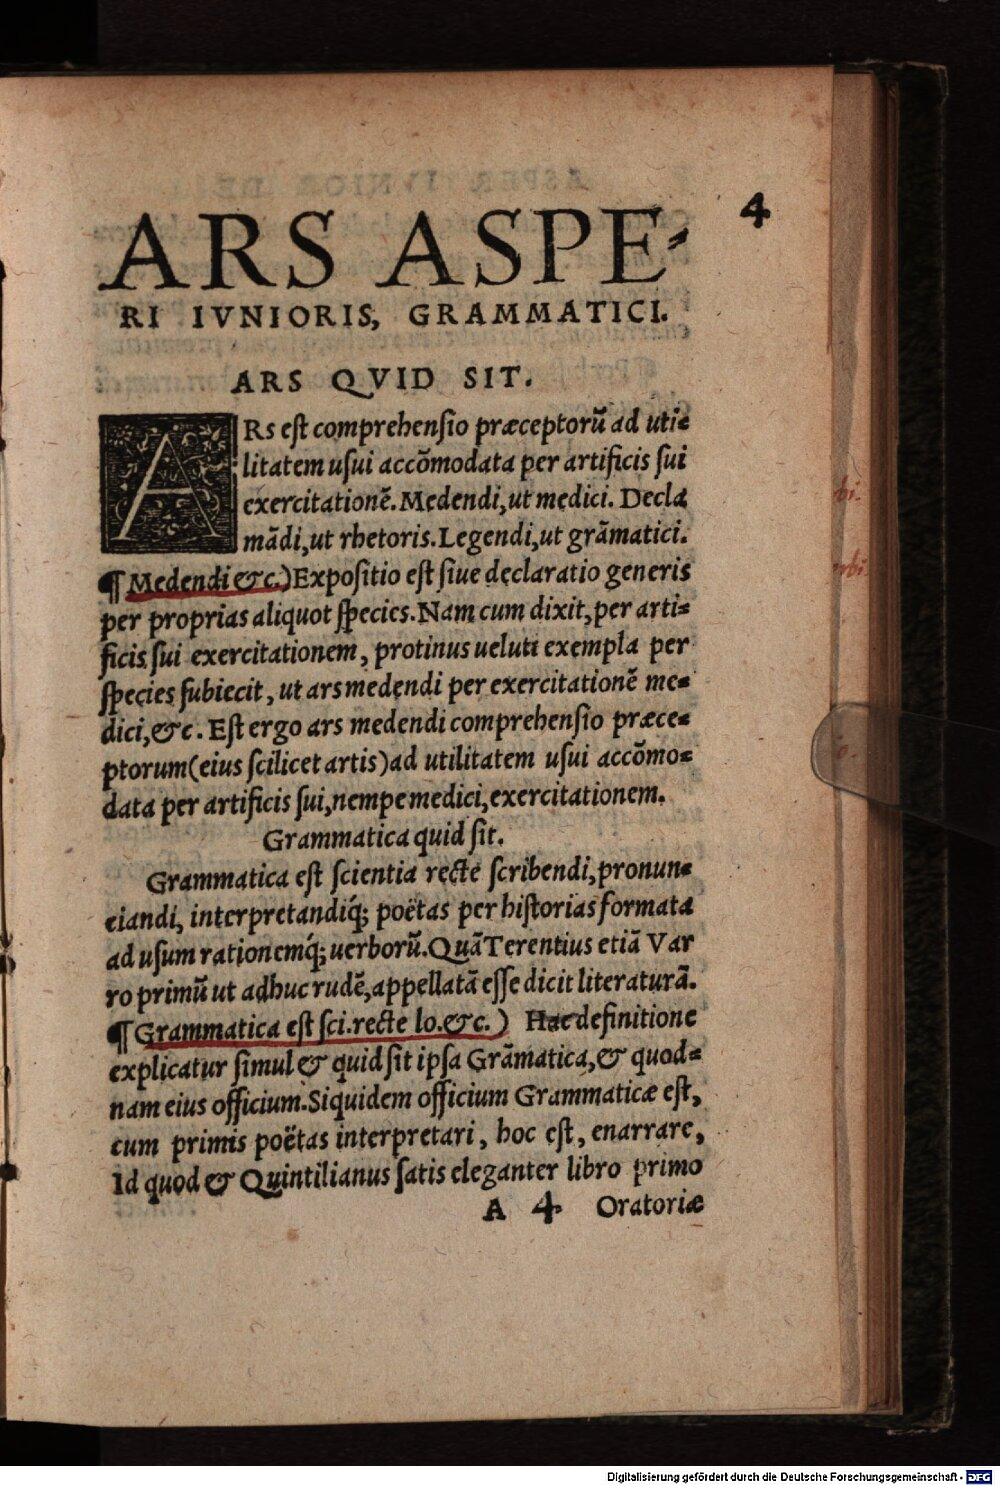 4
ARS ASPE-
RI IVNIORIS, GRAMMATICI.
ARS QVID SIT.
ARs eſt comprehenſio præceptorū ad uti-
litatem uſui accōmodata per artificis ſui
exercitationē. Medendi, ut medici. Decla
mādi, ut rhetoris. Legendi, ut grāmatici.
¶ Medendi &c.) Expoſitio eſt ſiue declaratio generis
per proprias aliquot ſpecies. Nam cum dixit, per arti-
ficis ſui exercitationem, protinus ueluti exempla per
ſpecies ſubiecit, ut ars medendi per exercitationē me-
dici, &c. Eſt ergo ars medendi comprehenſio præce-
ptorum (eius ſcilicet artis) ad utilitatem uſui accōmo-
data per artificis ſui, nempe medici, exercitationem.
Grammatica quid ſit.
Grammatica eſt ſcientia recte ſcribendi, pronun-
ciandi, interpretandiq́; poëtas per hiſtorias formata
ad uſum rationemq́; uerborū. Quā Terentius etiā Var
ro primū ut adhuc rudē, appellatā eſſe dicit literaturā.
¶ Grammatica eſt ſci. recte lo. &c.) Hac definitione
explicatur ſimul & quid ſit ipſa Grāmatica, & quod-
nam eius officium. Siquidem officium Grammaticæ eſt,
cum primis poëtas interpretari, hoc eſt, enarrare,
Id quod & Quintilianus ſatis eleganter libro primo
A 4 Oratoriæ
Digitalisierung gefördert durch die Deutsche Forschungsgemeinschaft - DFG